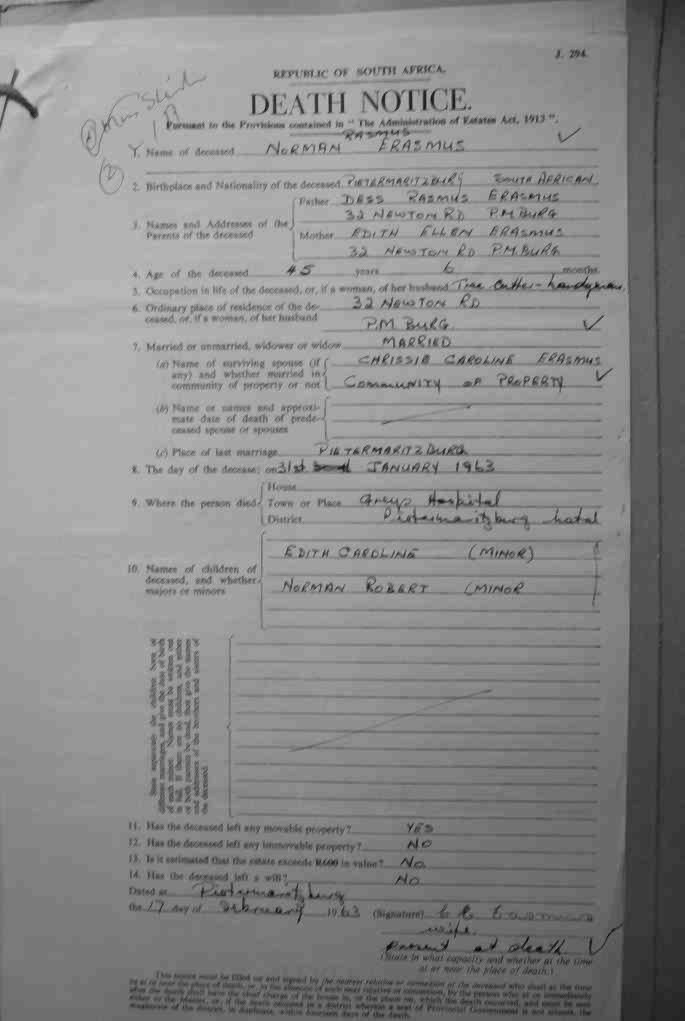 J. 294.
REPUBLIC OF SOUTH AFRICA.
DEATH NOTICE.
Pursuant to the Provisions contained in "The Administration of Estates Act, 1913".
RASMUS
1. Name of deceased NORMAN ERASMUS
2. Birthplace and Nationality of the deceased PIETERMARITZBURG SOUTH AFRICAN
3. Names and Addresses of the Parents of the deceased
Father DESS RASMUS ERASMUS
32 NEWTON RD P.M. BURG
Mother EDITH ELLEN ERASMUS
32 NEWTON RD P.M. BURG
4. Age of the deceased 45 years 6 months
5. Occupation in life of the deceased, or, if a woman, of her husband Tree Cutter - handyman
6. Ordinary place of residence of the de- 32 NEWTON RD
ceased, or, if a woman, of her husband
P.M. BURG
7. Married or unmarried, widower or widow MARRIED
(a) Name of surviving spouse (if CHRISSIE CAROLINE ERASMUS
any) and whether married in
community of property or not COMMUNITY OF PROPERTY
(b) Name or names and approxi-
mate date of death of prede-
ceased spouse or spouses
(c) Place of last marriage PIETERMARITZBURG
8. The day of the decease; on 31st JANUARY 1963
House
9. Where the person died Town or Place Greys Hospital
District Pietermaritzburg Natal
EDITH CAROLINE (MINOR)
10. Names of children of
deceased, and whether
majors or minors
NORMAN ROBERT (MINOR
State separately the children born of
different marriages, and give the date of birth
of each minor. Names must be written out
in full. If there are no children, and either
or both parents be dead, then give the names
and addresses of the brothers and sisters of
the deceased.
11. Has the deceased left any movable property? YES
12. Has the deceased left any immovable property? NO
13. Is it estimated that the estate exceeds R600 in value? No
14. Has the deceased left a will? No
Dated at Pietermaritzburg
the 17 day of February 1963 (Signature) C C Erasmus
wife
present at death
(State in what capacity and whether at the time
at or near the place of death.)
This notice must be filled up and signed by the nearest relative or connection of the deceased who shall at the time